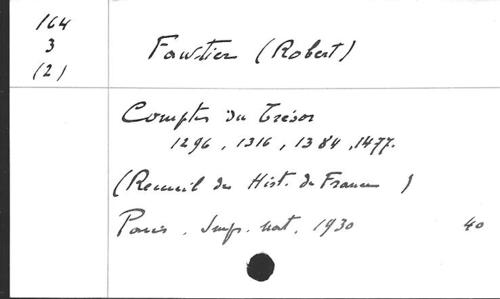 164
3
(2)
Fawtier (Robert)
Comptes du Trésor
1296, 1316, 1384, 1477.
(Recueil des Hist. de France)
Paris. Imp. nat. 1930 40